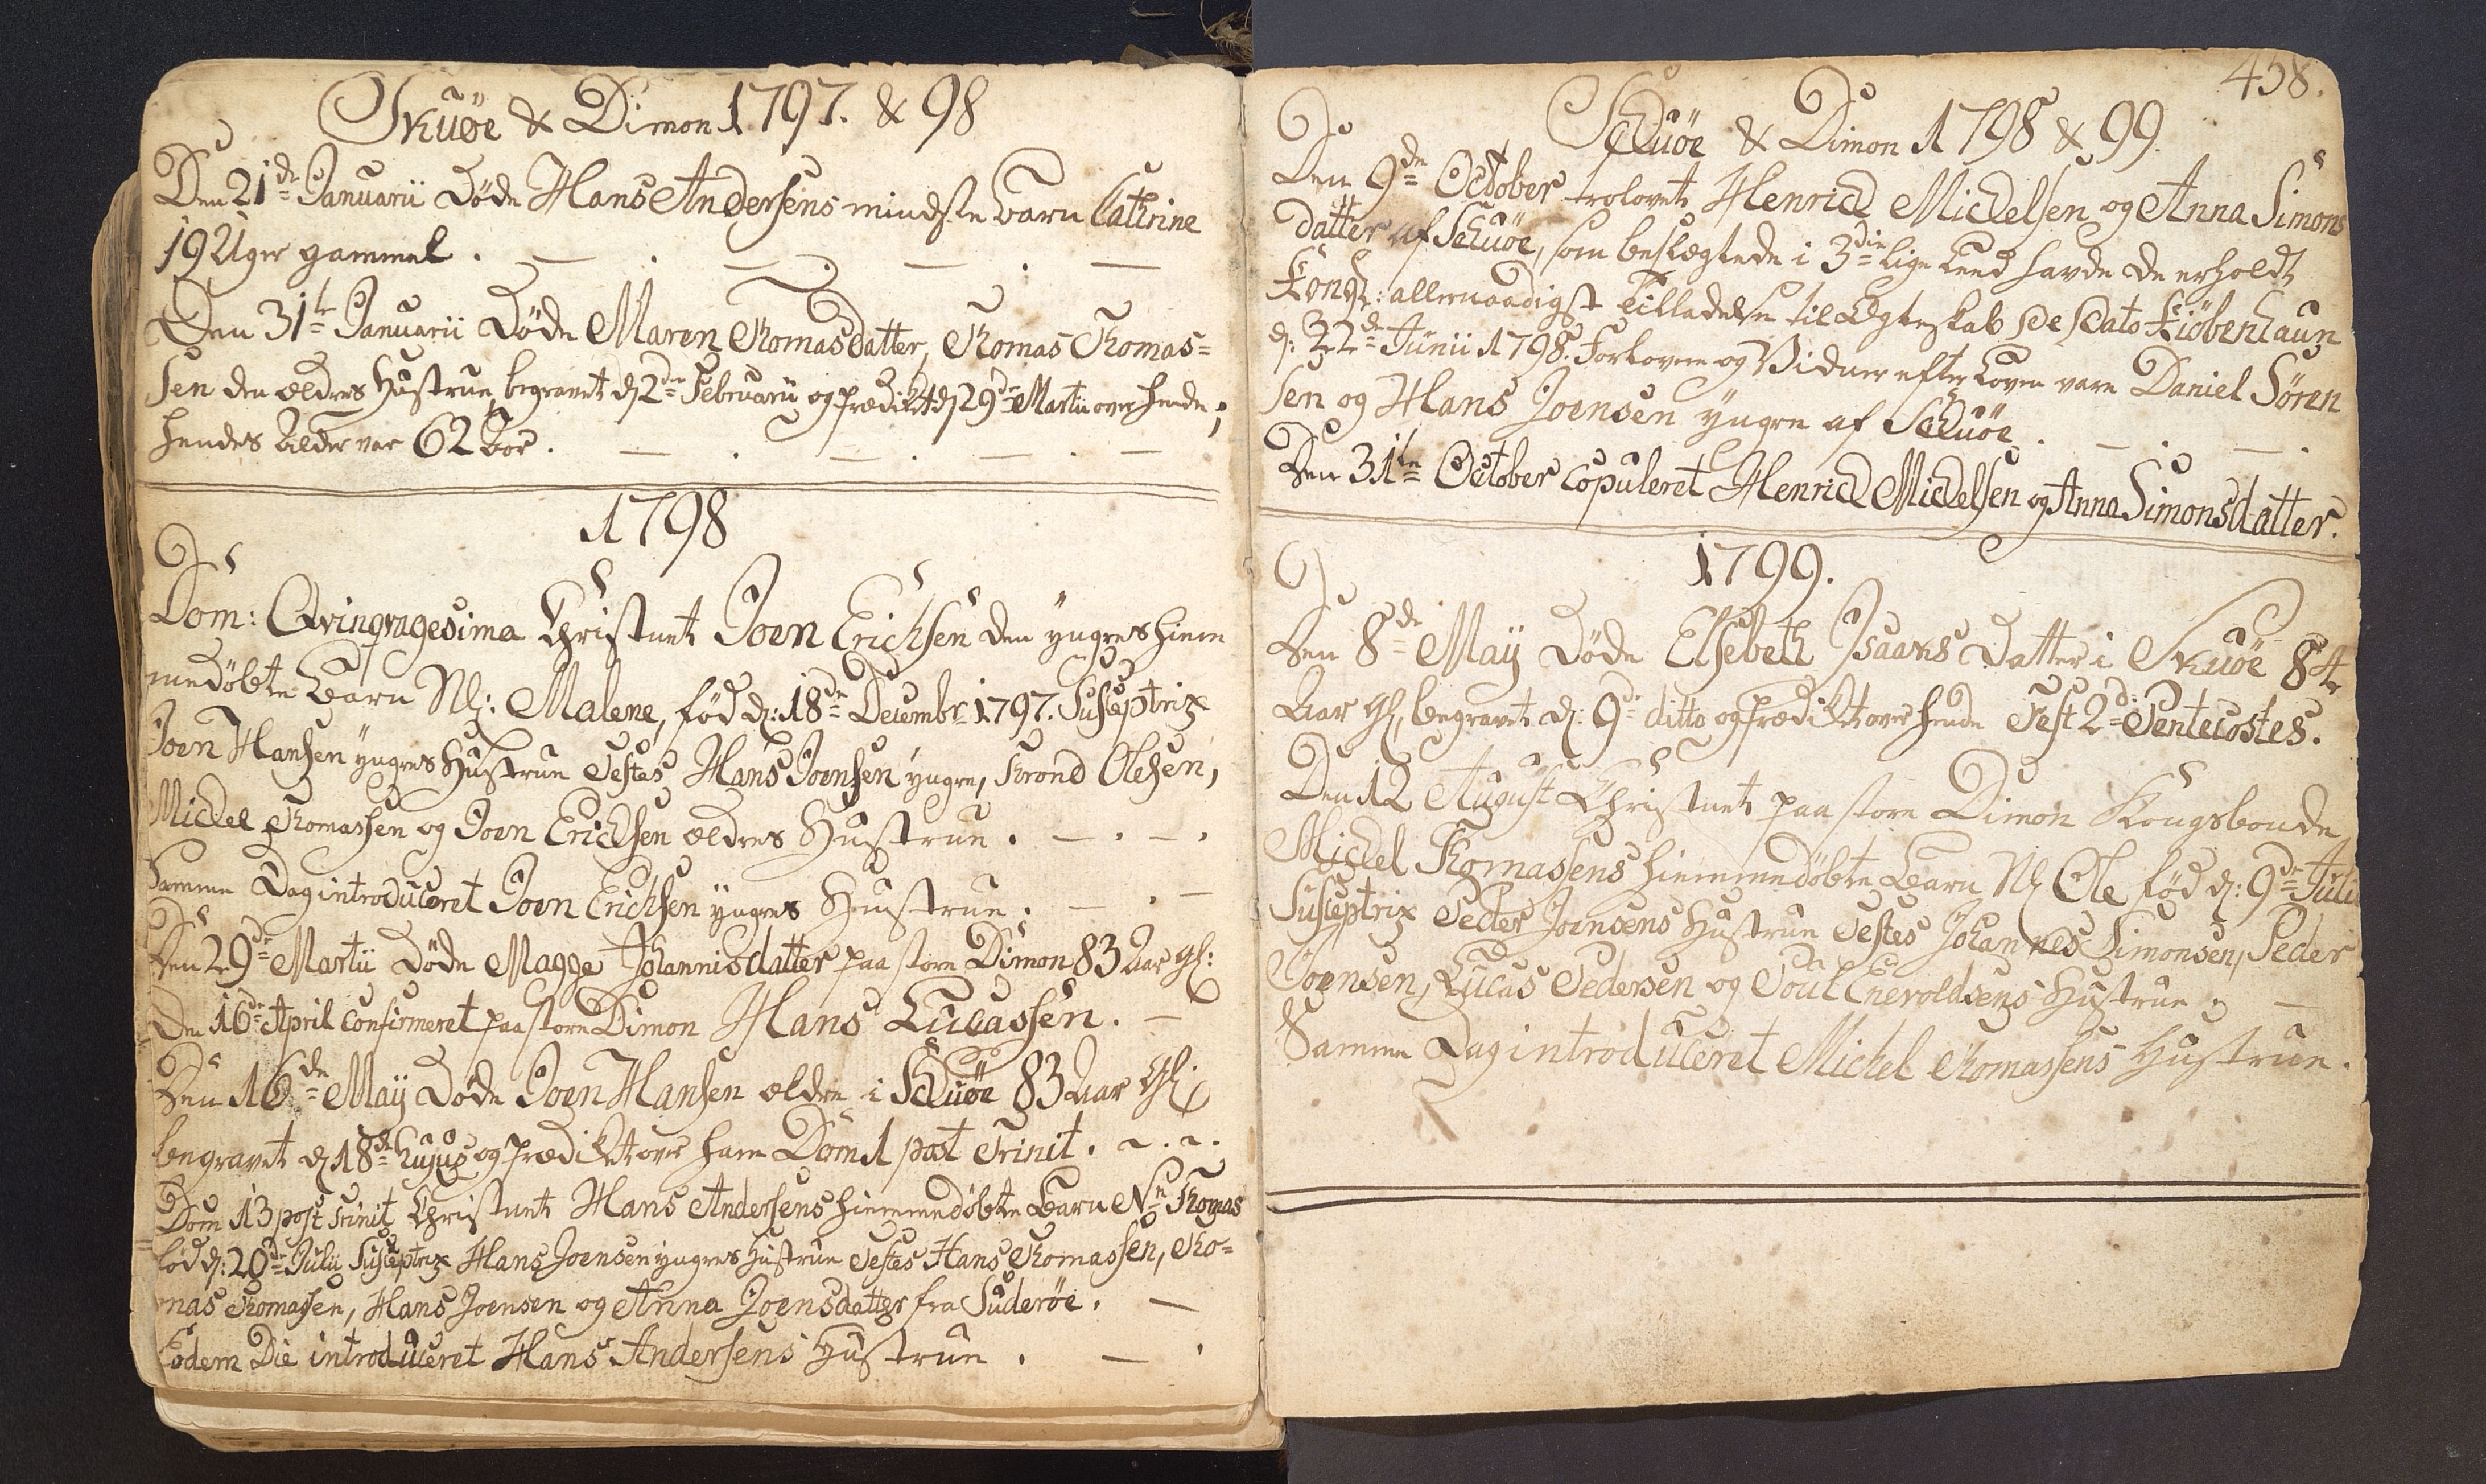 Skuøe & Dimon 1797. & 98
Den 21de Januarii Døde Hans Andersens mindste barn Cathrine
19 Uger gammel.
Den 31te Januarii Døde Maren Thomasdatter, Thomas Thomas=
sen den ældres Hustrue, begravet d: 2den Februarii og prædiket d: 29de Martii over hende;
hendes Alder var 62 Aar.
1798
Dom: Qvinqvagesima Christnet Joen Erichsen den yngres hiem
medøbte Barn Nl: Malene, fød d: 18de Decembr 1797. Susceptrix
Joen Hansen yngres Hustrue Testes Hans Joensen yngre, Trond Olesen,
Mickel Thomassen og Joen Erichsen ældres Hustrue.
Samme Dag introduceret Joen Erichsen yngres Hustrue.
Den 29de Martii Døde Magge Johannisdatter paa store Dimon 83 Aar gl:
Den 16de April confirmeret paa store Dimon Hans Lucassen.
Den 16de Maij Døde Joen Hansen ældre i Skuøe 83 Aar gl:
begravet d: 18de hujus og prædiket over ham Dom 1 post Trinit.
Dom 13 post Trinit Christnet Hans Andersens hiemmedøbte Barn Nn Thomas
fød d: 20de Julii Susceptrix Hans Joensen yngres Hustrue Testes Hans Thomassen, Tho=
mas Thomassen, Hans Joensen og Anna Joensdatter fra Suderøe.
Eodem Die introduceret Hans Andersens Hustrue.
458.
Skuøe & Dimon 1798 & 99.
Den 9de October trolovet Henrich Mickelsen og Anna Simons
datter af Skuøe, som beslægtede i 3die lige Leed havde de erholdt
Kongl: allernaadigst Tilladelse til Ægteskab De Dato Kiøbenhaun
d: 22de Junii 1798. Forlovere og Vidner efter Loven vare Daniel Søren
sen og Hans Joensen yngre af Skuøe.
Den 31te October copuleret Henrich Mickelsen og Anna Simonsdatter.
1799.
Den 8de Maij Døde Elsebeth Isaaks Datter i Skuøe 84
Aar gl, begravet d: 9de ditto og prædiket over hende Fest 2de Pentecostes.
Den 12 August Christnet paa store Dimon Kongsbonde
Mickel Thomassens hiemmedøbte Barn Nl Ole fød d: 9de Julii
Susceptrix Peder Joensens Hustrue Testes Johannes Simonsen, Peder
Joensen, Lucas Pedersen og Poul Enevoldsens Hustrue.
Samme Dag introduceret Mickel Thomassens Hustrue.